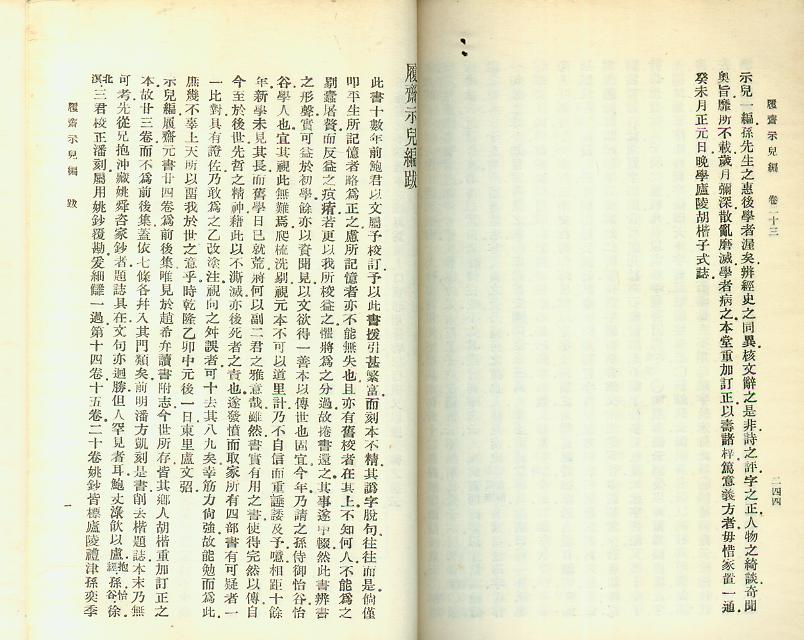 履齋示兒編　卷二十三
二四四
示兒一編孫先生之惠後學者渥矣辨經史之同異核文辭之是非詩之評字之正人物之綺談奇聞
奧旨靡所不載歲月彌深散亂磨滅學者病之本堂重加訂正以壽諸梓篤意義方者毋惜家置一通
癸未月正元日晚學廬陵胡楷子式誌
履齋示兒編跋
此書十數年前鮑君以文屬予校訂予以此書援引甚繁富而刻本不精其譌字脫句往往而是倘僅
叩平生所記憶者略爲正之慮所記憶者亦不能無失也且亦有舊校者在其上不知何人不能爲之
剔蠹屠贅而反益之疻痏若更以我所校益之懼將爲之分過故捲書還之其事遂中輟然此書辨書
之形聲實可益於初學餘亦以資聞見以文欲得一善本以傳世也固宜今年乃請之孫侍御怡谷怡
谷學人也宜其視此無難焉爬梳洗剔視元本不可以道里計乃不自信而重諈諉及予噫相距十餘
年新學未見其長而舊學日已就荒將何以副二君之雅意哉雖然書實有用之書使得完然以傳自
今至於後世先哲之精神藉此以不澌滅亦後死者之責也遂發憤而取家所有四部書有可疑者一
一比對具有證佐乃敢爲之乙改塗注視向之舛誤者可十去其八九矣幸筋力尙強故能勉而爲此
庶幾不辜上天所以留我於世之意乎時乾隆乙卯中元後一日東里盧文弨
示兒編履齋元書廿四卷爲前後集唯見於趙希弁讀書附志今世所存皆其鄉人胡楷重加訂正之
本故廿三卷而不爲前後集蓋依七條各幷入其門類矣前明潘方凱刻是書削去楷題誌本末乃無
可考先從兄抱沖藏姚舜咨家鈔者題誌具在文句亦迥勝但人罕見者耳鮑丈淥飲以盧抱經孫怡谷徐
北溟三君校正潘刻屬用姚鈔覆勘爰細讎一過第十四卷十五卷二十卷姚鈔皆標廬陵禮津孫奕季
履齋示兒編　跋
一